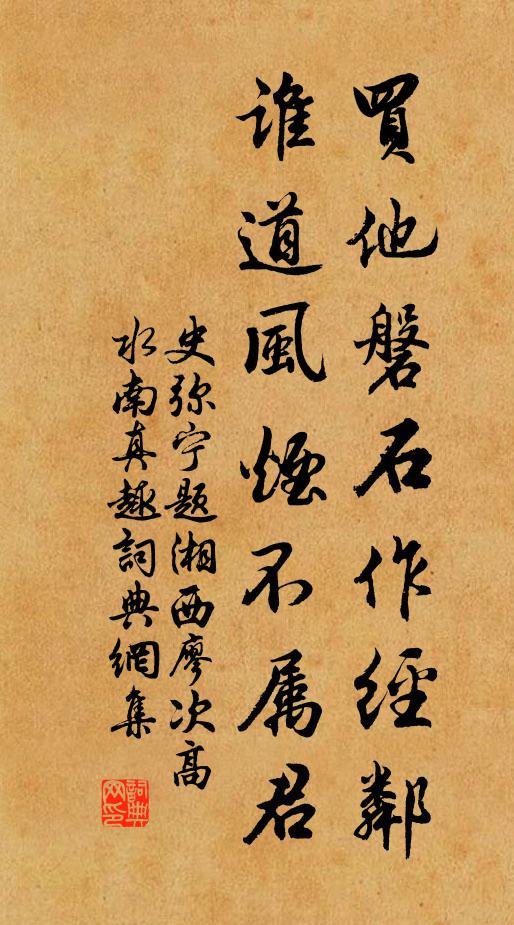 買他磐石作經鄰
谁道風煙不属君
史弥宁题湘西廖次高
水南真趣詞典網集
詞典网印